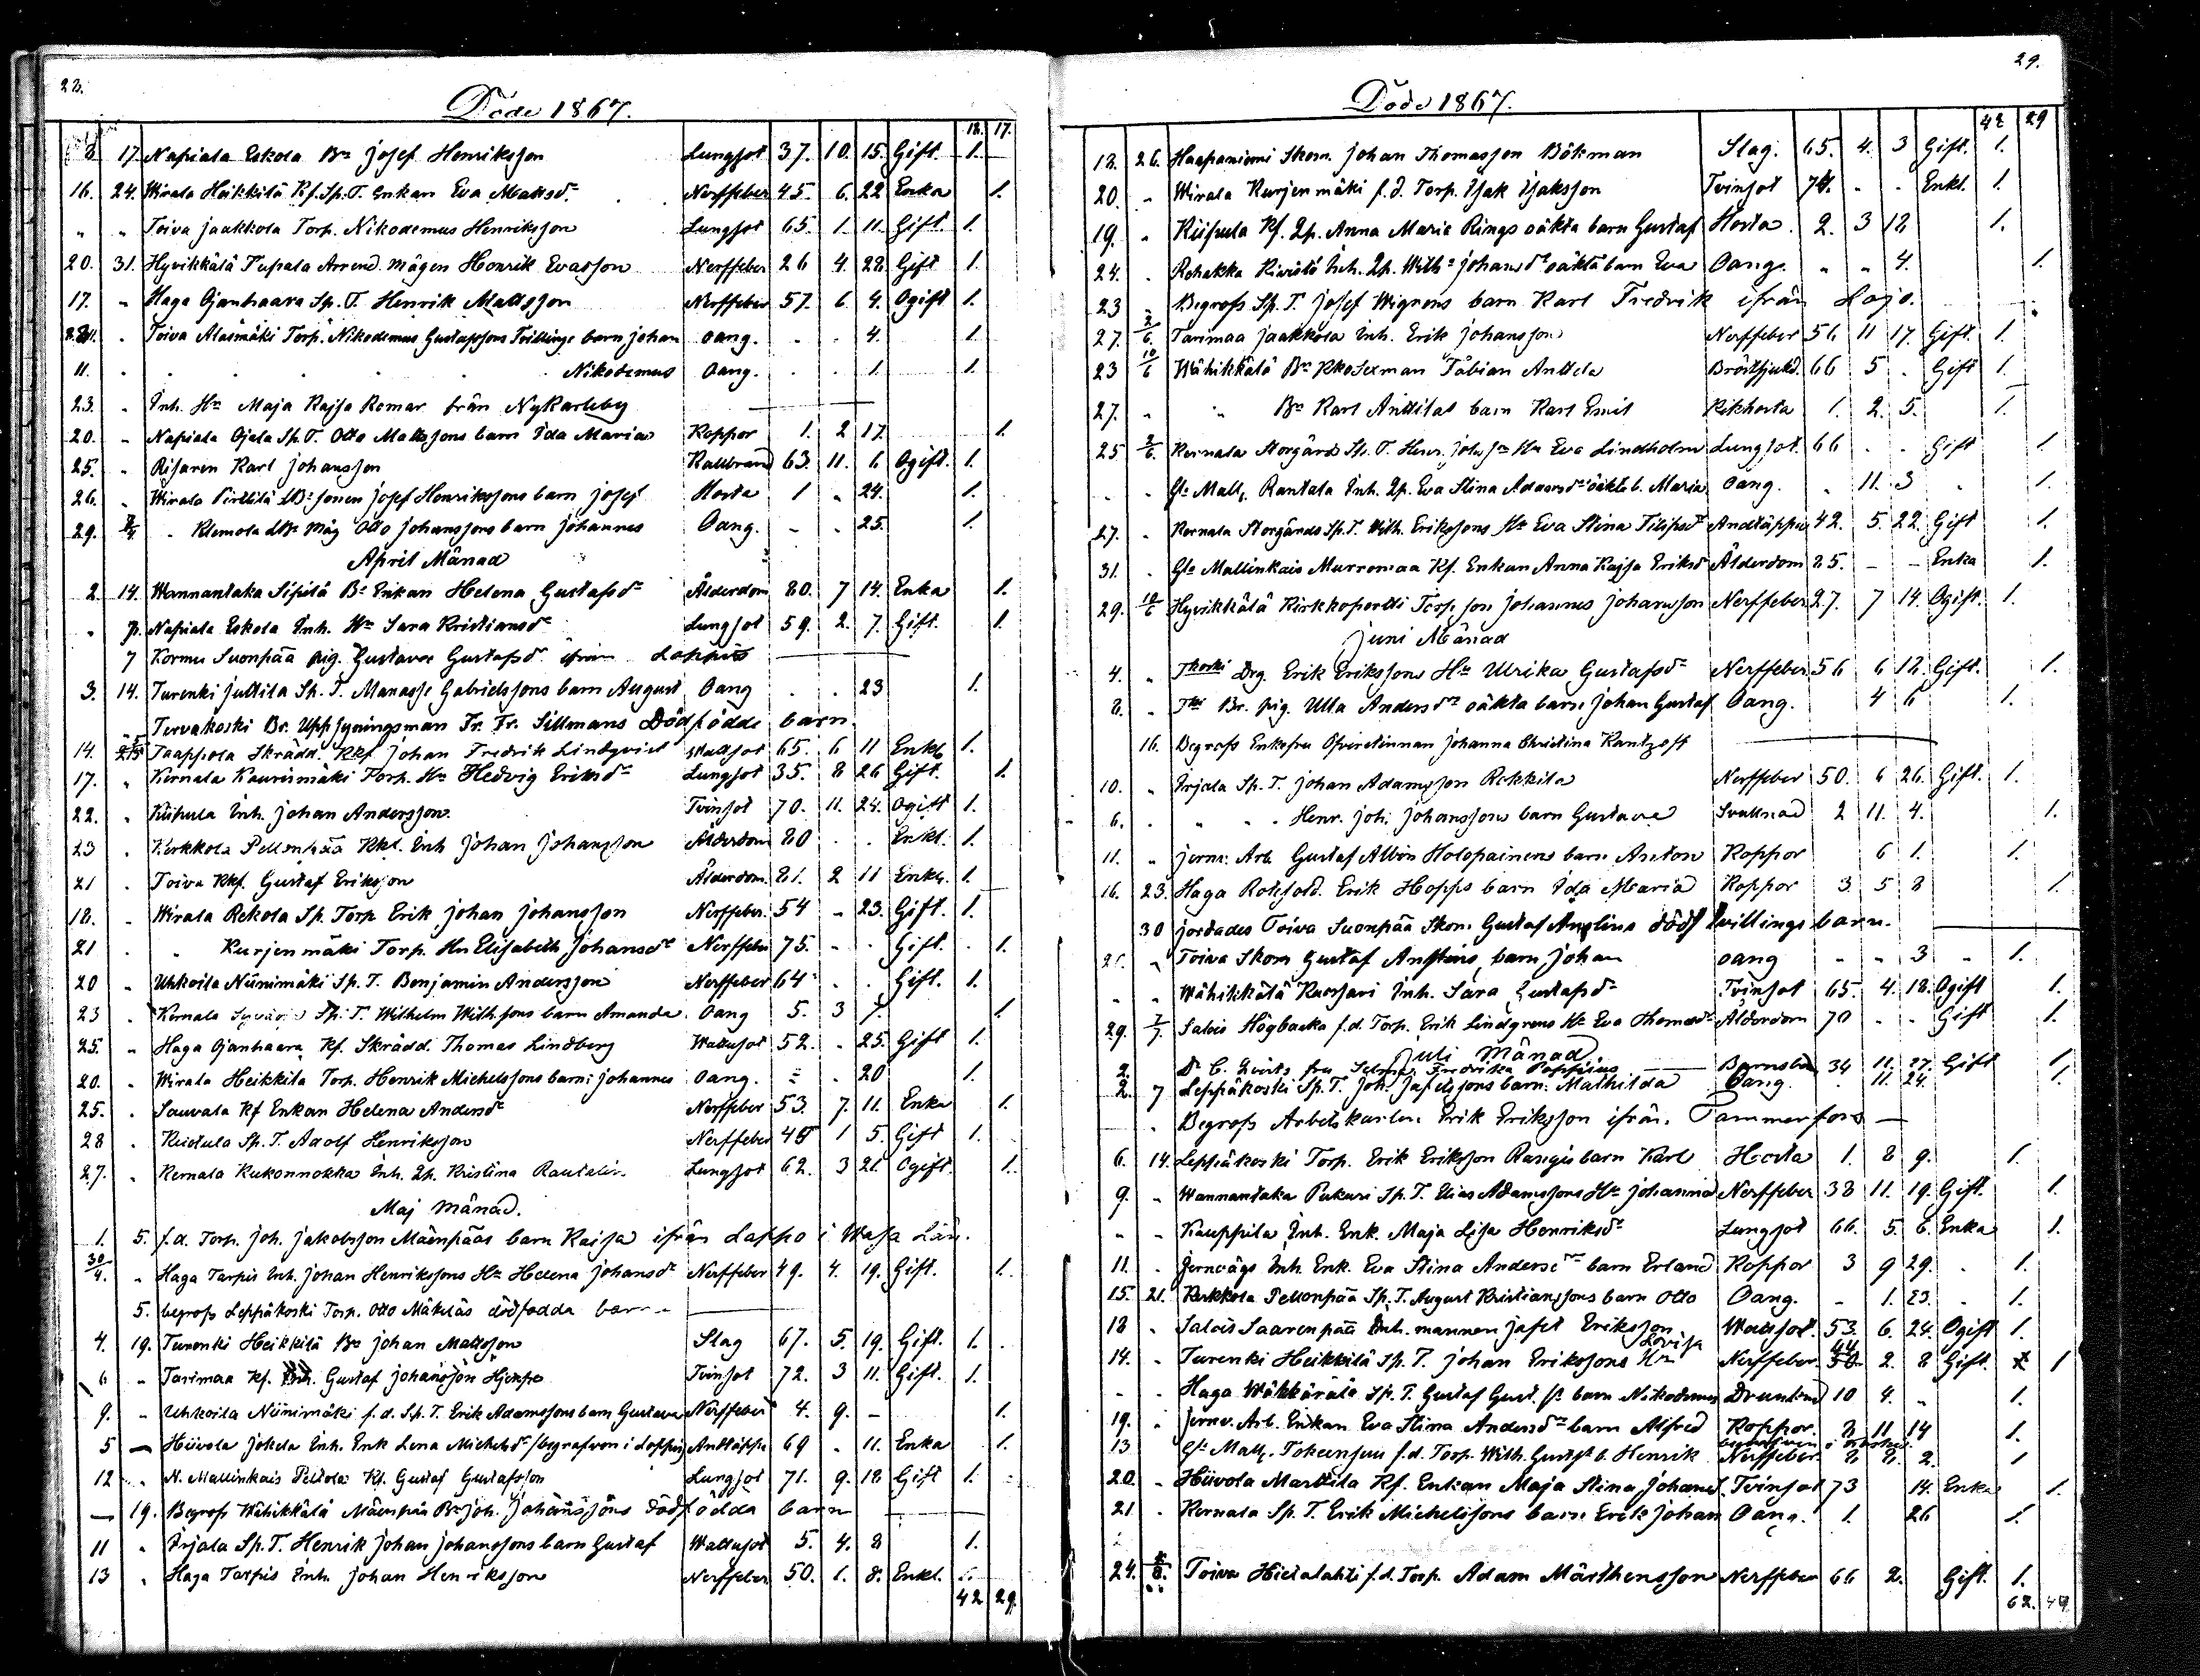 28.
Döde 1867.
18. 17.
8 17. Napiala Eskola Bn Josef Henriksson Lungsot 37. 10. 15. Gift 1.
16. 24. Wirala Heikkilä Kf. Sp. T. Enkan Eva Mattsdr Nerffeber 45. 6. 22 Enka 1.
" " Toiva Jaakkola Torp. Nikodemus Henriksson Lungsot 65. 1. 11. Gift. 1.
20. 31. Hyvikkälä Pupala Arrend. mågen Henrik Evasson Nerffeber 26 4. 28. Gift 1.
17. " Haga Ojanhaara Sp. T. Henrik Mattsson Nerffeber 57. 6. 4. Ogift 1.
" Toiva Alasmäki Torp. Nikodemus Gustafssons Tvillinge barn Johan oang. 4. 1.
11. " Nikodemus Oang. 1. 1.
23. " Inh. Hu Maja Kajsa Romar från NyKarleby
20. " Napiala Ojala Sp. T. Otto Mattssons barn Ida Maria Koppor 1. 2 17. 1.
25. " Risaren Karl Johansson Kallbrand 63. 11. 6 Ogift. 1.
26. " Wirala Pirttilä Bn sonen Josef Henrikssons barn Josef Hosta 1 " 24. 1.
29. " Klemola Bn Måg Otto Johanssons barn Johannes Oang. - - 25. 1.
April Månad
2. 14. Wannantaka Sipilä Bs Enkan Helena Gustafsdr Ålderdom 80. 7 14. Enka 1.
" " Napiala Eskola Inh. Hu Sara Kristiansdr Lungsot 59. 2. 7. Gift. 1.
7 Kormu Suonpää pig. Gustava Gustafsdr ifrån Loppis
3. 14. Turenki Juttila Sp. T. Manasse Gabrielssons barn August Oang " . 23 1.
" Tervakoski Br. Uppsyningsman Fr. Fr. Sillmans Dödfödde barn.
14. Taappola Skrädd. Kkf. Johan Fredrik Lindqvist Wattsot 65. 6 11 Enkl. 1.
17. " Kernala Kaurismäki Torp. Hu Hedvig Eriksdr Lungsot 35. 8 26 Gift. 1.
22. " Kiipula Inh. Johan Andersson. Tvinsot 70. 11. 24. Ogift 1.
23 . Kerkkola Pellonpää Kkl. Inh Johan Johansson Ålderdom 80 . . Enkl. 1.
21 . Toiva Kkf. Gustaf Eriksson Ålderdom. 81. 2 11 Enkl. 1.
18. " Wirala Rekola Sp. Torp Erik Johan Johansson Nerffeber. 54 " 23. Gift. 1.
21 . " Kurjenmäki Torp. Hu Elisabeth Johansdr Nerffeber 75. - . Gift. 1.
20 " Uhkoila Niinimäki Sp. T. Benjamin Andersson Nerffeber 64 . . Gift. 1.
23 . Kernala Sp. T. Wilhelm Wilh.sons barn Amanda. Oang 5. 3 7. 1
25. " Haga Ojanhaara Kf. Skrädd. Thomas Lindberg Wattusot 52. . 25. Gift 1.
20. " Wirala Heikkila Torp. Henrik Michelssons barn Johannes Oang. . 20 1.
25. . Sauvala Kf Enkan Helena Andersdr Nerffeber 53. 7. 11. Enka 1.
28 . Ruitula Sp. T. Adolf Henriksson Nerffeber 45 1 5. Gift 1.
27. . Kernala Kukonnokka Inh. Qp. Kristina Lungsot 62. 3 21. Ogift. 1.
Maj Månad.
1. 5. f.d. Torp. Joh. Jakobsson Mäenpääs barn Kaisa ifrån Lappo i Wasa Län.
30/4. " Haga Tarpis Inh. Johan Henrikssons Hu Helena Johansdr Nerffeber 49. 4. 19. Gift. 1.
5. begrofs Leppäkoski Torp. Otto Mäkeläs dödfödda barn
4. 19. Turenki Heikkilä Bn Johan Mattsson Slag 67. 5. 19. Gift. 1.
6 " Tarimaa Kf. Inh. Gustaf Johansson Hjerpe Tvinsot 72. 3 11. Gift. 1.
9. " Uhkoila Niinimäki f.d. Sp. T. Erik Adamssons barn Gustava Nerffeber 4. 9. - 1.
5 — Hiivola Jokela Inh. Enk Lena Michelsdr /begrafven i Loppis Andtäppa 69 . 11. Enka 1.
12 . N. Mallinkais Peltola Kf. Gustaf Gustafsson Lungsot 71. 9. 18 Gift 1.
— 19. Begrofs Wähikkälä Mäenpää Bn Joh. Johanssons dödfödda barn
11 . Irjala Sp. T. Henrik Johan Johanssons barn Gustaf Wattusot 5. 4. 8 1.
13 . Haga Tarpis Inh. Johan Henriksson Nerffeber 50. 1. 8. Enkl. 1.
42 29.
29.
Döde 1867.
42 29
12. 26. Haapaniemi Skom. Johan Thomasson Bökman Slag. 65. 4. 3 Gift. 1.
20. " Wirala Kurjenmäki f.d. Torp. Isak Isaksson Tvinsot 74. . . Enkl. 1.
19. " Kiipula Kf. Qp. Anna Maria Rings oäkta barn Gustaf Hosta. 2. 3 12 1.
24. . Rehakka Kivistö Inh. Qp. Wilha Johansdr oäkta barn Eva Oang. " " 4. 1.
23 " Begrofs Sp. T. Josef Wigrens barn Karl Fredrik ifrån Lojo.
27. 2/6. Tarimaa Jaakkola Inh. Erik Johansson Nerffeber 56 11 17. Gift. 1.
23 10/6 Wähikkälä Bn Kkosexman Fabian Anttila Bröstsjukd. 66 5 . Gift 1.
27. " " Bn Karl Anttilas barn Karl Emil Kikhosta 1. 2. 5. 1.
25 2/6. Kernala Storgårds Sp. T. Henr. Joh. Hu Eva Lindholm Lungsot. 66 . . Gift 1.
. . Gls Mall. Rantala Inh. Qp. Eva Stina Adamsdr oäkta b. Maria Oang. " 11. 3 1.
27. . Kernala Storgårds Sp. T. Wilh. Erikssons Hu Eva Stina Filipsdr Andtäppa 42. 5. 22. Gift 1.
31. . Gls Mallinkais Murromaa Kf. Enkan Anna Kajsa Eriksdr Ålderdom 85. - - Enka 1.
29. 10/6 Hyvikkälä Kirkkoportti Torp. son Johannes Johansson Nerffeber 27. 7 14. Ogift. 1.
Juni Månad
4. " Tkoski Drg. Erik Erikssons Hu Ulrika Gustafsdr Nerffeber 56 6 12. Gift. 1.
8. " Tki Br. pig. Ulla Andersdrs oäkta barn Johan Gustaf Oang. 4 6 1.
16. Begrofs Enkefru Öfverstinnan Johanna Christina Kantzoff
10. " Irjala Sp. T. Johan Adamsson Rekkila Nerffeber 50. 6 26. Gift. 1.
6. . " . . Henr. Joh. Johanssons barn Gustava Svullnad 2 11. 4. 1.
11. " Jernv. Arb. Gustaf Albin Holopainens barn Anton Koppor 6 1. 1.
16. 23. Haga Rotesold. Erik Hopps barn Ida Maria Koppor 3 5 8 1.
30 jordades Toiva Suonpää Skom. Gustaf Anstins dödf tvillings barn.
" Toiva Skom Gustaf Anstins barn Johan oang " " 3 " 1.
" " Wähikkälä Inh. Sara Gustafsdr Tvinsot 65. 4. 18. Ogift 1.
29. 7/7. Salois Högbacka f.d. Torp. Erik Lindgrens Hu Eva Thomasdr Ålderdom 70 . . Gift 1.
Juli Månad
2. Dr C. Qvists fru Selma Fredrika Poppius Barnsbörd 34 11. 27. Gift 1.
2. 7 Leppäkoski Sp. T. Joh. Jafetssons barn Mathilda Oang. . 11. 24. 1.
" . Begrofs Arbetskarlen Erik Eriksson ifrån Tammerfors —
6. 14. Leppäkoski Torp. Erik Eriksson barn Karl Hosta 1. 8 9. 1.
9. " Wannantaka Pukari Sp. T. Elias Adamssons Hu Johanna Nerffeber 38 11. 19. Gift. 1.
" . Kauppila Inh. Enk. Maja Lisa Henriksdr Lungsot 66. 5. 6. Enka 1.
11. . Jernvägs Inh. Enk. Eva Stina Andersdrs barn Erland Koppor 3 9 29. 1.
15. 21. Kerkkola Pellonpää Sp. T. August Kristianssons barn Otto Oang. " 1. 23. 1.
18 . Salois Saarenpää Inh. mannen Jafet Eriksson Wattsot. 53. 6. 24. Ogift 1.
14. . Turenki Heikkilä Sp. T. Johan Erikssons Hu Lovisa Nerffeber. 44 2. 8 Gift. 1
. . Haga Wäkkärälä Sp. T. Gustaf Gust. ss barn Nikodemus Drunknad 10 4. " 1.
19. . Jernv. Arb. Enkan Eva Stina Andersdrs barn Alfred Koppor. 2 11 14 1.
13 Gls Mall. Tokeensuu f.d. Torp. Wilh. Gustfs b. Henrik Nerffeber. 2 2. 2. 1
20. . Hiivola Marttila Kf. Enkan Maja Stina Johansd. Tvinsot 73 14. Enka 1.
21 . Kernala Sp. T. Erik Michelssons barn Erik Johan Oang. 1. 26 1.
24. 8. Toiva Hietalahti f.d. Torp. Adam Mårthensson Nerffeber 66 2. Gift. 1.
62. 49